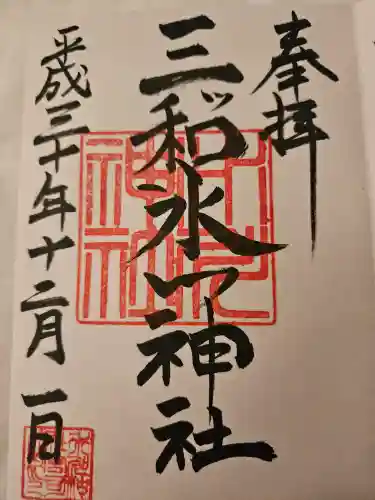 奉拝
三ツ和氷川神社
平成三十年十二月一日
氷川神社